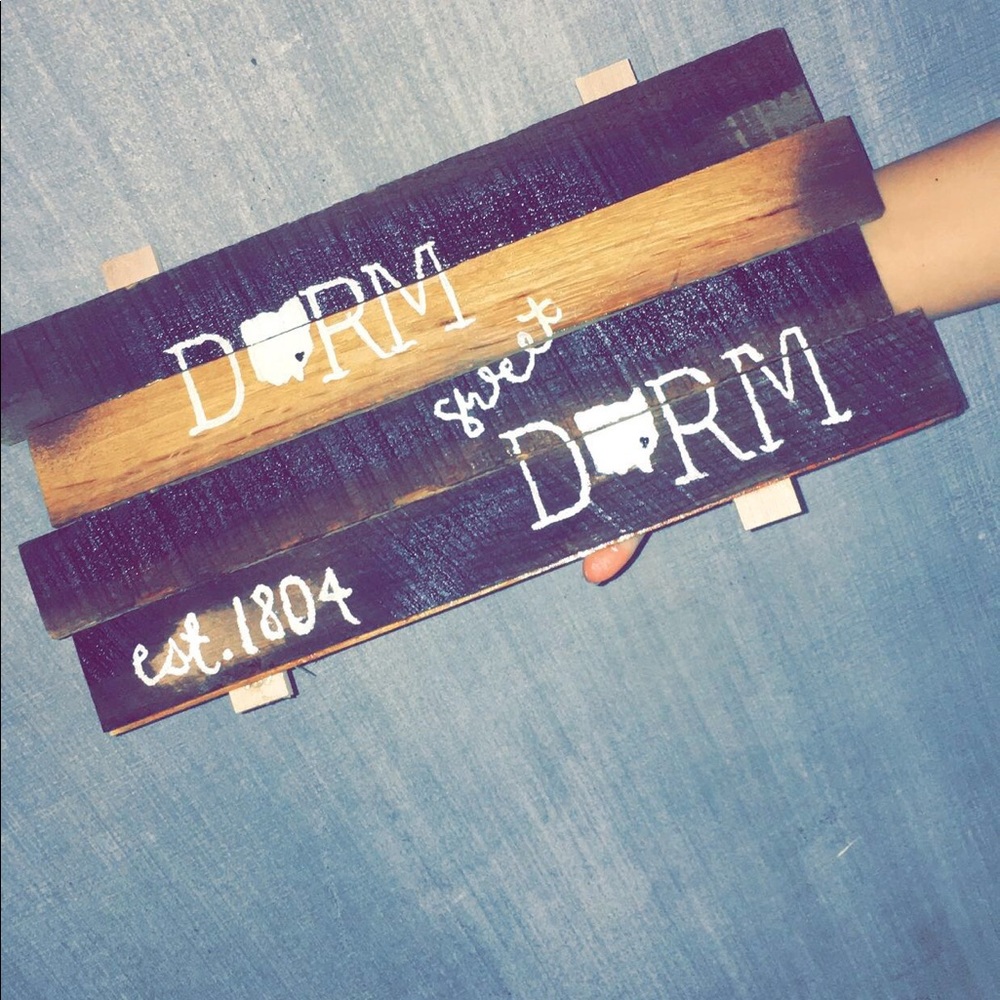 DORM
sweet
DORM
est. 1804